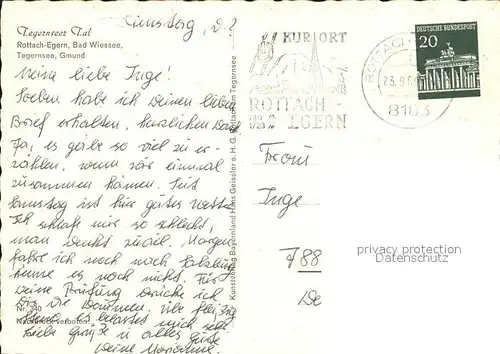 Dienstag,
Tegernseer Tal
Rottach-Egern, Bad Wiessee,
Tegernsee, Gmund
Meine liebe Inge!
Soeben habe ich Deinen lieben
Brief erhalten, herzlichen Dank
Ja, es gäbe so viel zu er-
zählen, wenn wir einmal
zusammen kämen. Seit
Samstag ist hier gutes Wetter
Ich schlafe nur so schlecht,
man denkt zuviel. Morgen
fahre ich noch nach Salzburg
kenne es noch nicht. Für
Deine Prüfung drücke ich
Dir die Daumen.
Nr. 340
es belastet mich sehr
Nachdruck verboten
Liebe Grüße u. alles Gute
Deine Marianne
Kunstverlag Bayernland Hans Geissler o.H.G. Rottach am Tegernsee
KURORT
ROTTACH-
EGERN
ROTTACH
8183
DEUTSCHE BUNDESPOST
20
Frau
Inge
788
De
privacy protection
Datenschutz